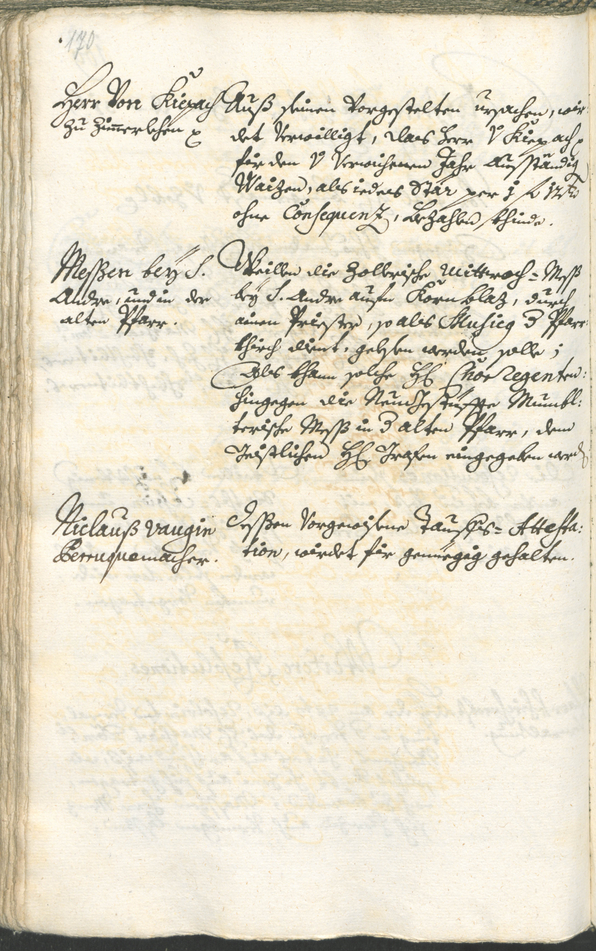 170
Herr Von Kiepach
zu Zimmerlehen
Auß seinen Vorgestelten ursachen, wir
det Verwilligt, dass Herr V Kiepach
für den V Verwichenen Jahr Ausständig
Waitzen, als iedes Stär per
ohne Consequenz, bezahlen khinde.
Meßen bey S.
Andre, und in der
alten Pfarr.
Weillen die Zollerische Mittwoch=Meß
bey S. Andre aufn Kornblaz, durch
ainen Priester, so als Musicg Pfarr
khirch dient, gelesen werden solle;
Als khann solche HH Chor Regenten:
hingegen die Neungestüffte Mumbl:
terische Meß in alten Pfarr, dem
Geistlichen HH eingegeben werd
Niclauß Vaugin
Berruquemacher.
Dessen Vorgewisene Tauffs=Attesta:
tion, würdet für genuegig gehalten.